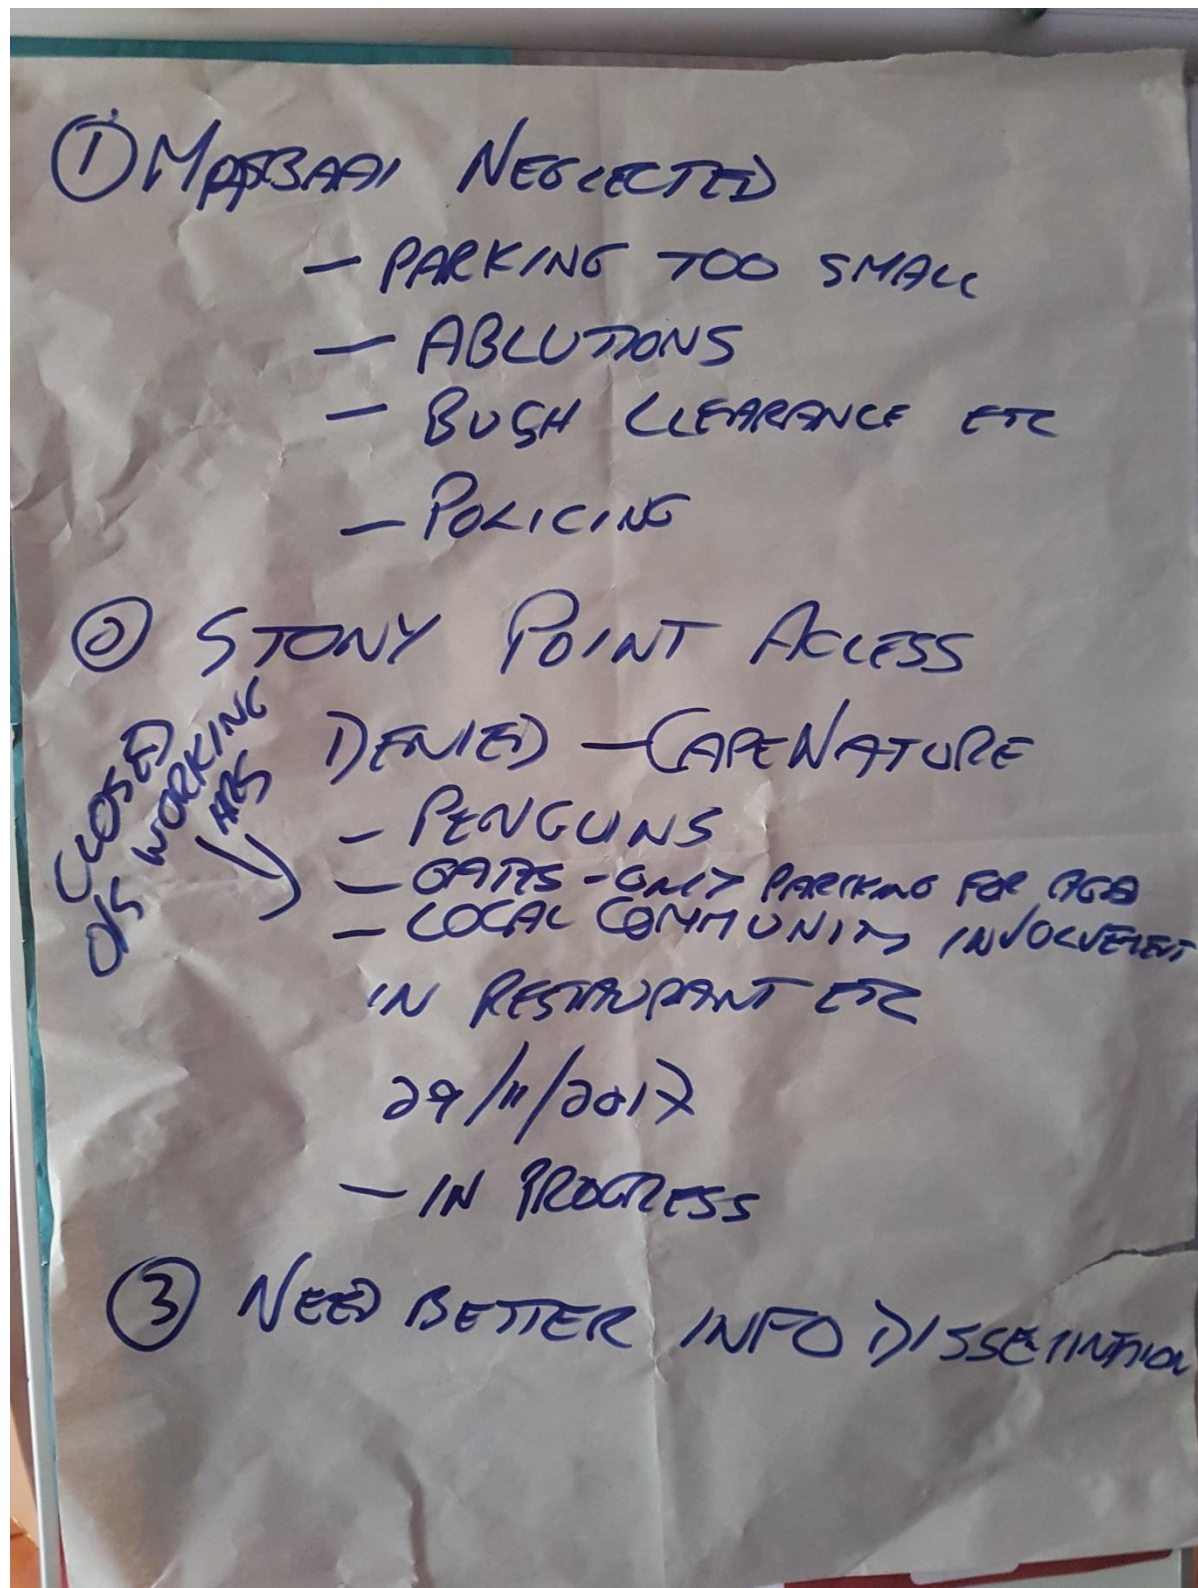 ① MAASBAAI NEGLECTED
— PARKING TOO SMALL
— ABLUTIONS
— BUSH CLEARANCE ETC
— POLICING
② STONY POINT ACCESS
DENIED — CAPENATURE
CLOSED
O/S WORKING
HRS
— PENGUINS
— GATES - ONLY PARKING FOR
— LOCAL COMMUNITY INVOLVEMENT
IN RESTAURANT ETC
29/11/2017
— IN PROGRESS
③ NEED BETTER INFO DISSEMINATION